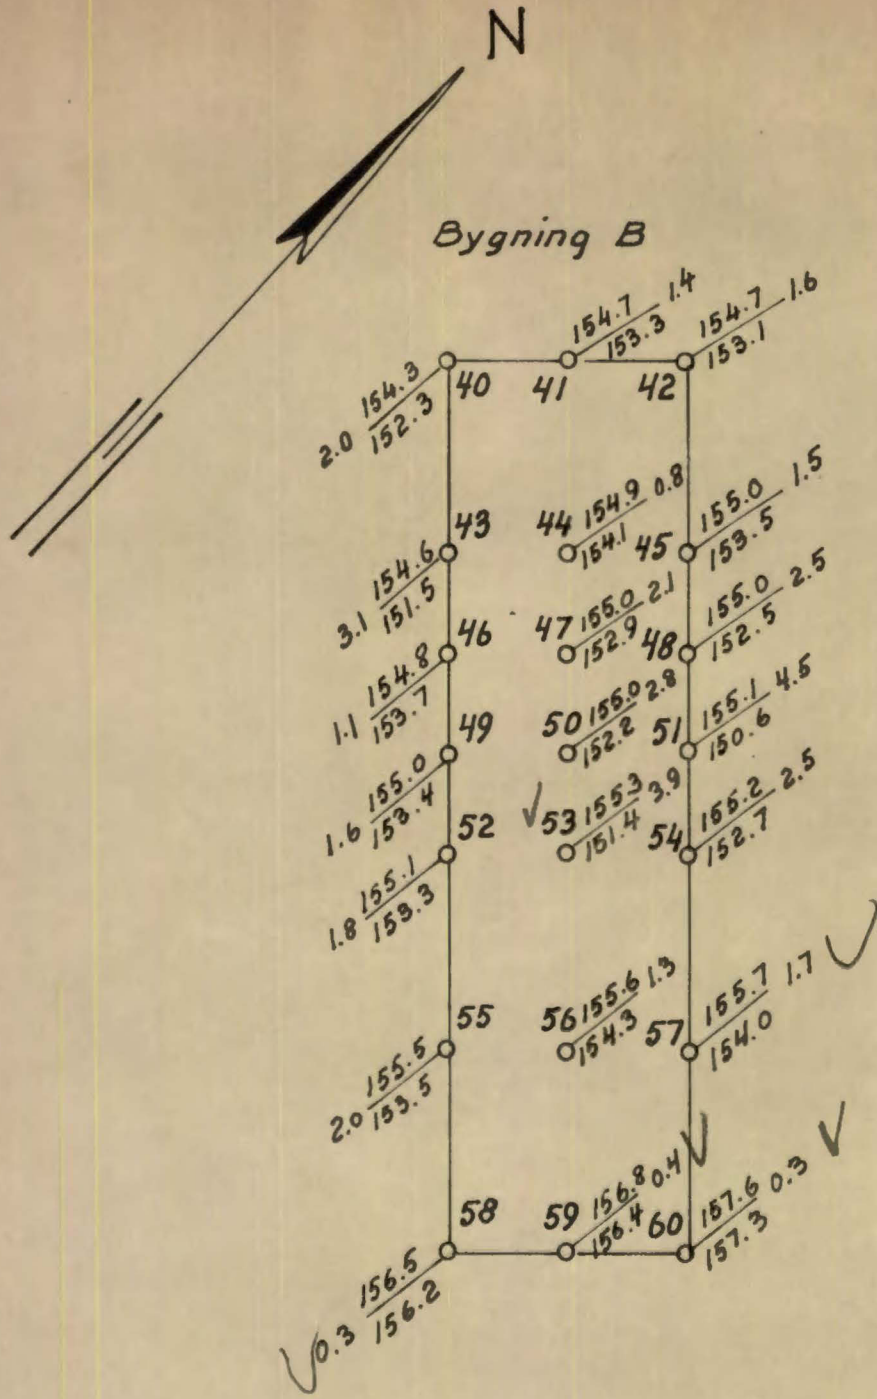 N
Bygning B
40 154.3 152.3 2.0
41 154.7 153.3 1.4
42 154.7 153.1 1.6
43 154.6 151.5 3.1
44 154.9 154.1 0.8
45 155.0 153.5 1.5
46 154.8 153.7 1.1
47 155.0 152.9 2.1
48 155.0 152.5 2.5
49 155.0 153.4 1.6
50 155.0 152.2 2.8
51 155.1 150.6 4.5
52 155.1 153.3 1.8
53 155.3 151.4 3.9
54 155.2 152.7 2.5
55 155.5 153.5 2.0
56 155.6 154.3 1.3
57 155.7 154.0 1.7
58 156.5 156.2 0.3
59 156.8 156.4 0.4
60 157.6 157.3 0.3